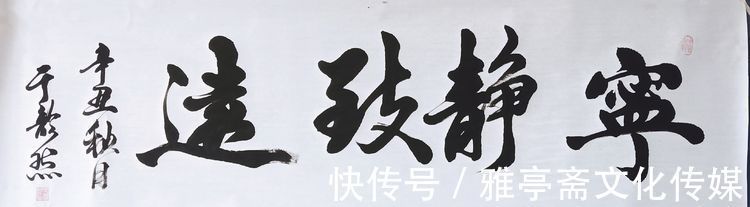 寧静致遠
辛丑秋月
于
快传号 / 雅亭斋文化传媒